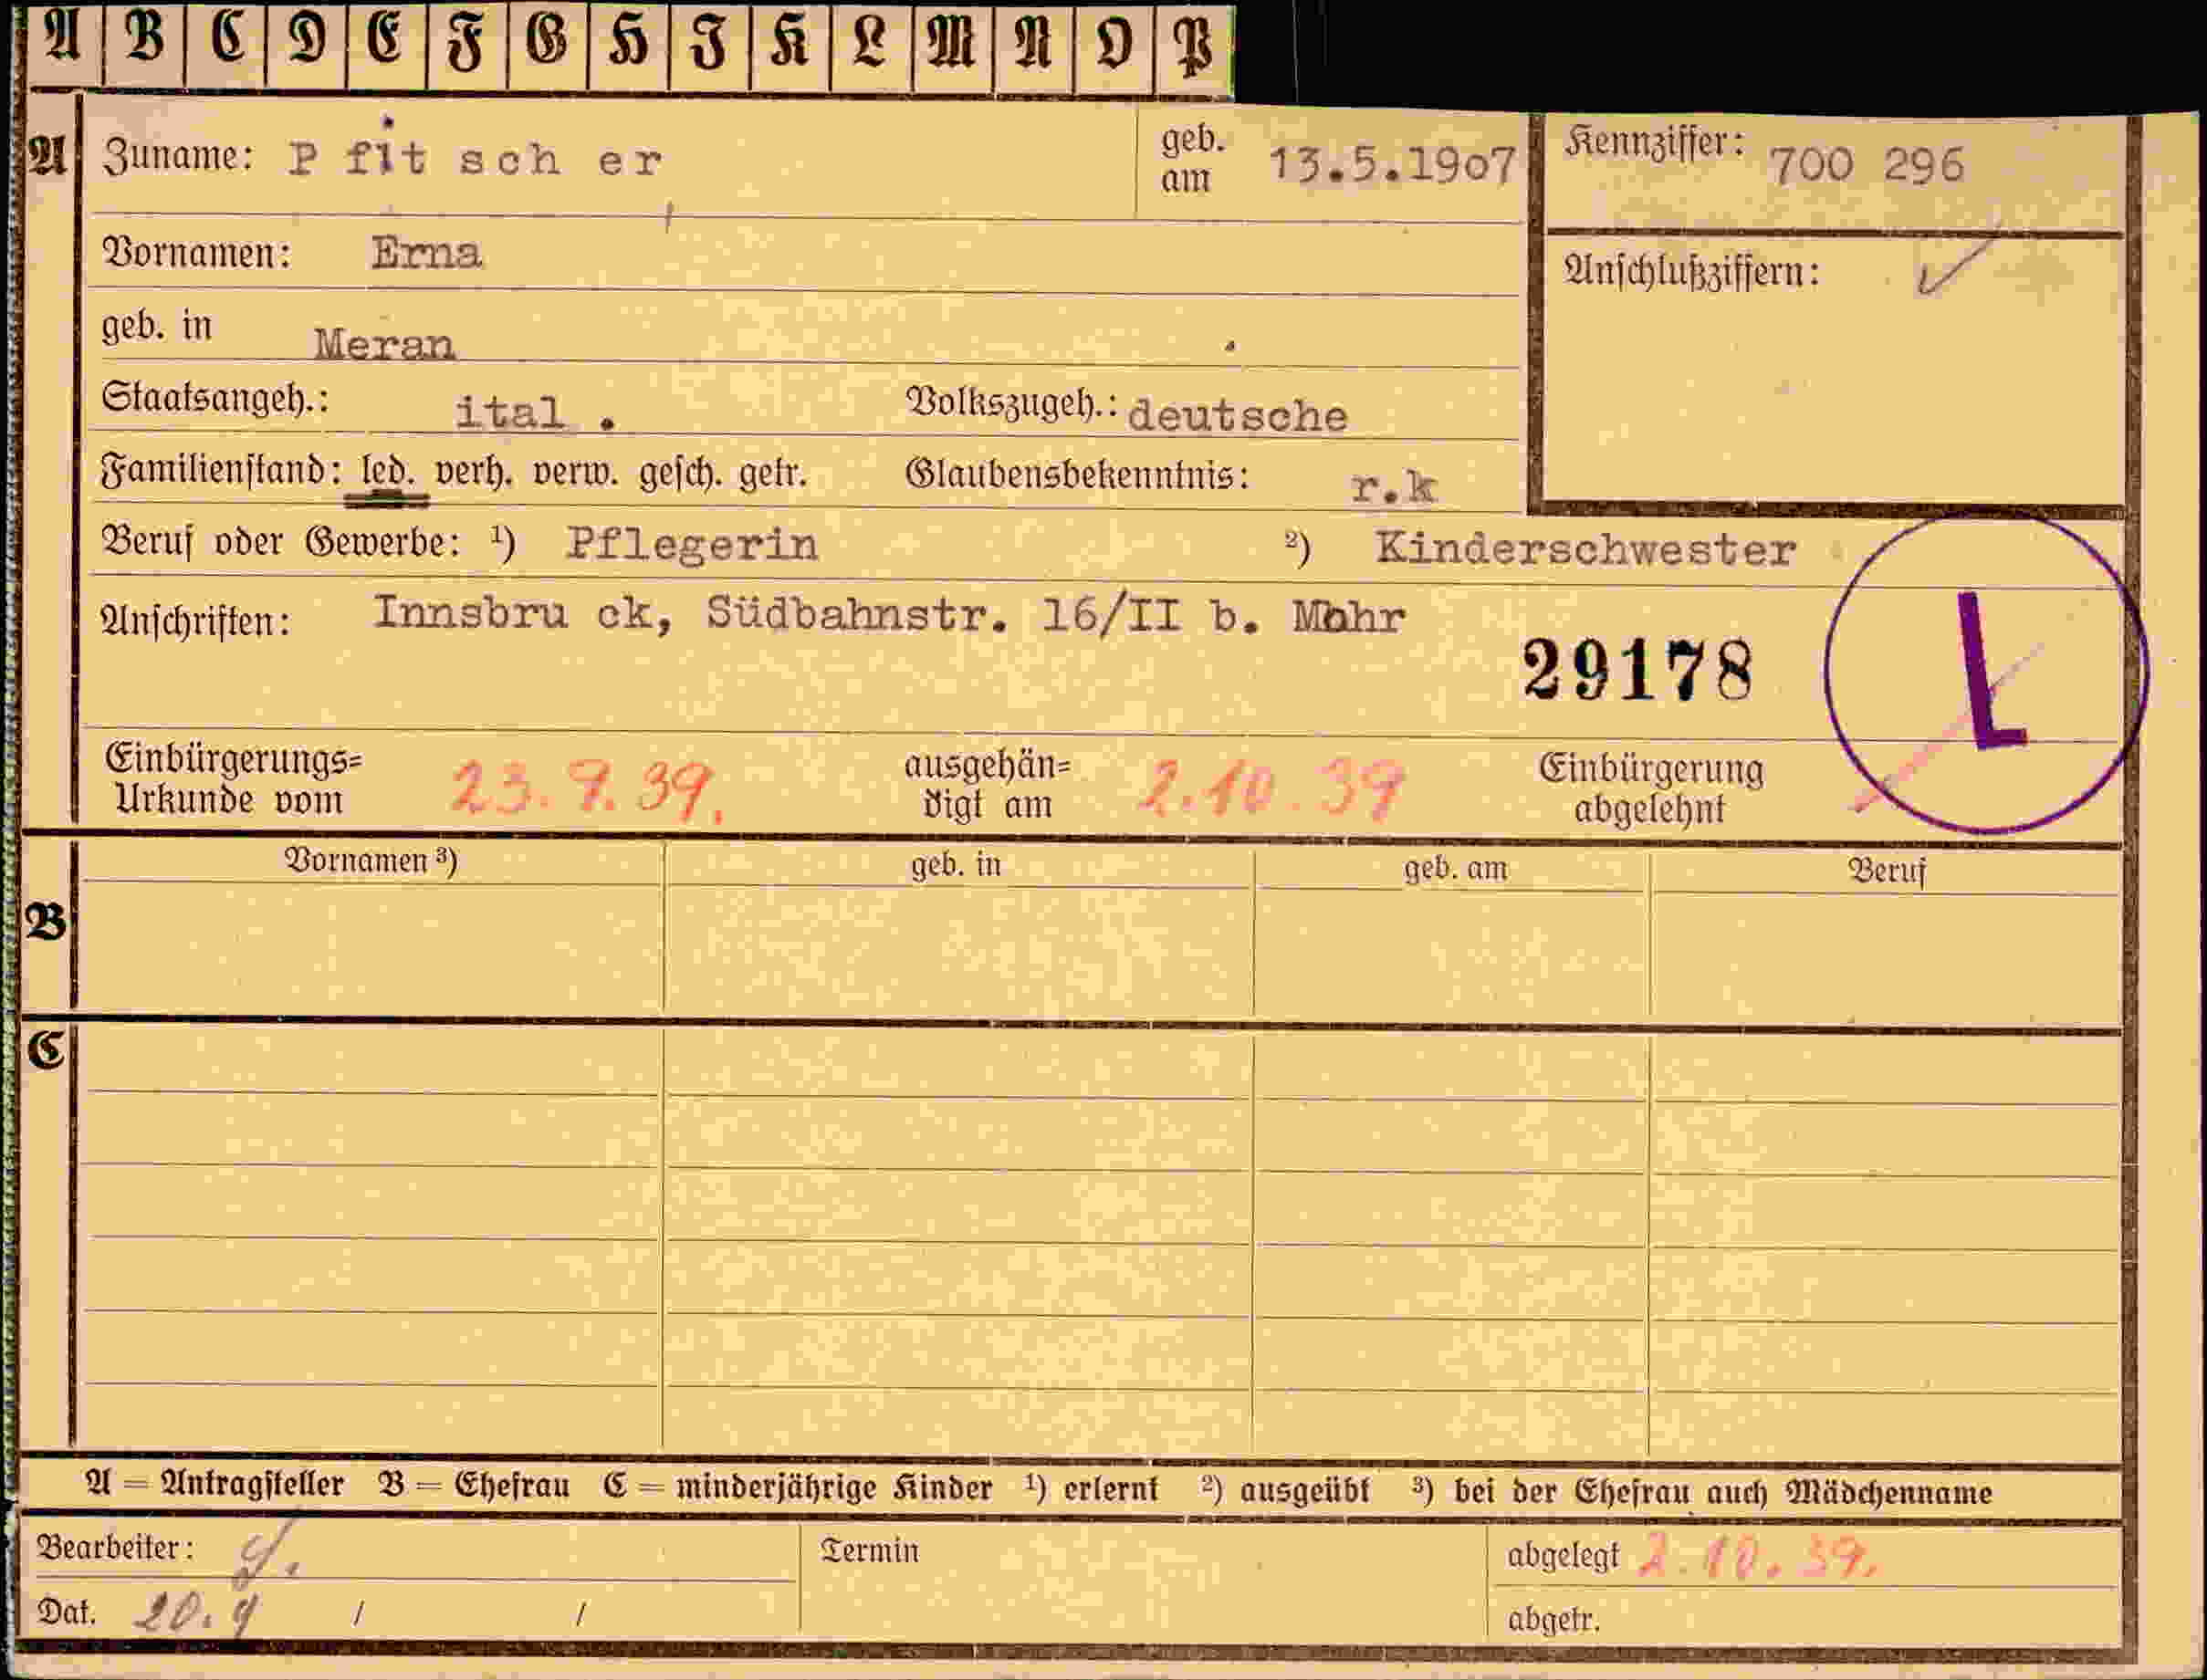 A B C D E F G H I K L M N O P
A Zuname: P fit sch er geb. am 13.5.19o7 Kennziffer: 700 296
Vornamen: Erna Anschlußziffern: ✓
geb. in Meran
Staatsangeh.: ital . Volkszugeh.: deutsche
Familienstand: led. verh. verw. gesch. getr. Glaubensbekenntnis: r.k
Beruf oder Gewerbe: ¹) Pflegerin ²) Kinderschwester
Anschriften: Innsbru ck, Südbahnstr. 16/II b. Mohr
29178 L
Einbürgerungs= Urkunde vom 23. 9. 39. ausgehän= digt am 2.10.39 Einbürgerung abgelehnt
Vornamen ³) geb. in geb. am Beruf
B
C
A = Antragsteller B = Ehefrau C = minderjährige Kinder ¹) erlernt ²) ausgeübt ³) bei der Ehefrau auch Mädchenname
Bearbeiter: Termin abgelegt 2.10.39.
Dat. 20.9 / / abgetr.